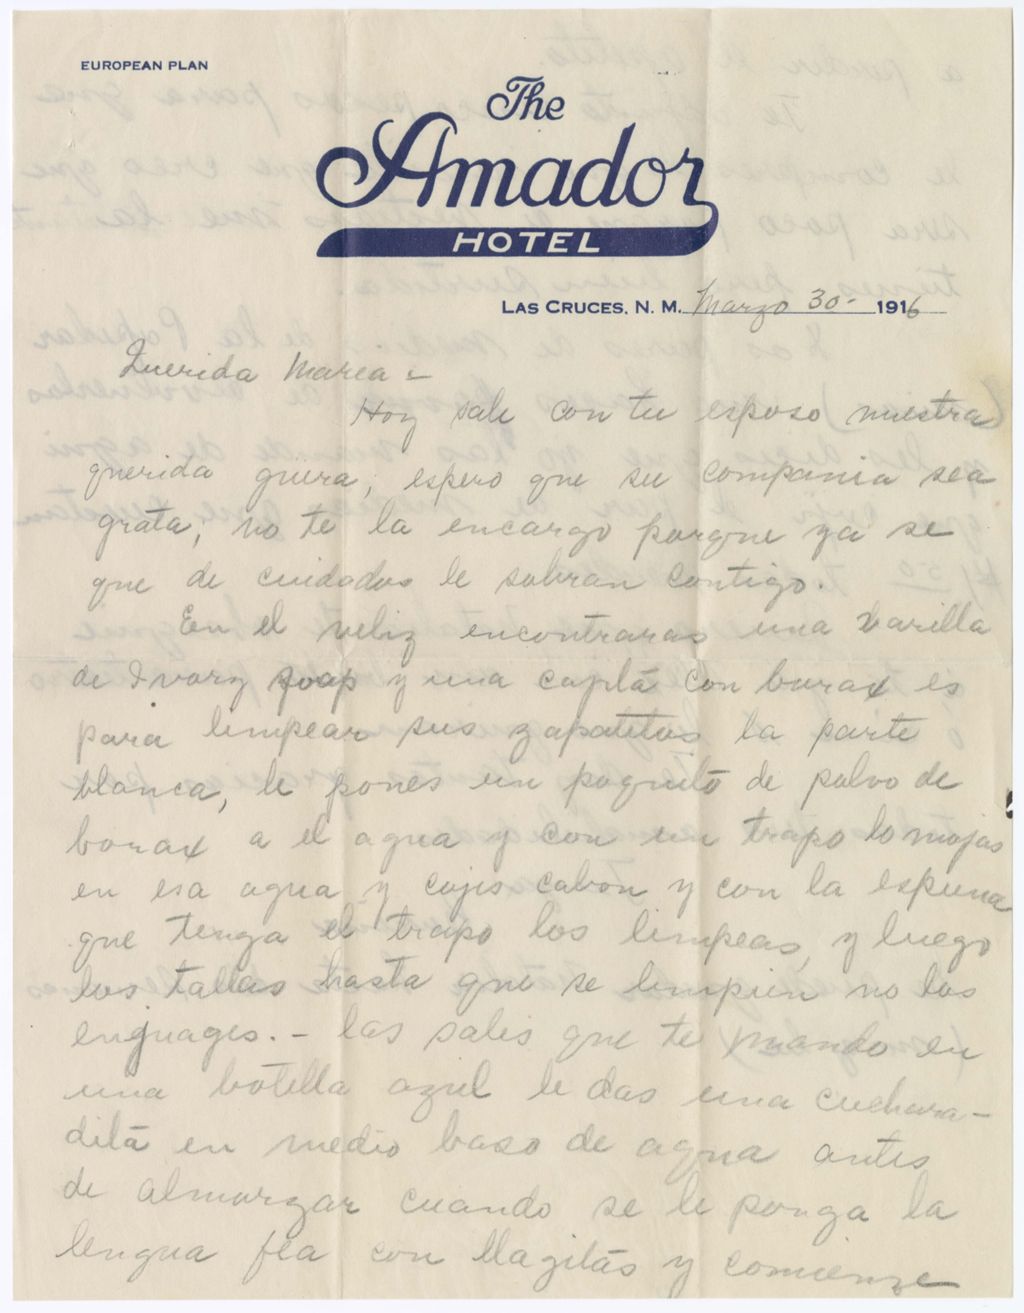 EUROPEAN PLAN
The
Amador
HOTEL
LAS CRUCES, N. M. Marzo 30- 1916
Querida Marea -
Hoy sale con tu esposo nuestra
querida guera, espero que su compania sea
grata, no te la encargo porque ya se
que de cuidados le sobran contigo.
En el veliz encontraras una barilla
de Ivory soap y una cajita con borax es
para limpear sus zapatitos la parte
blanca, le pones un poquito de polvo de
borax a el agua y con un trapo lo mojas
en esa agua y cojes cabon y con la espuma
que tenga el trapo los limpeas, y luego
los tallas hasta que se limpien no los
enjuages. - las sales que te mando en
una botella azul le das una cuchara-
dita en medio baso de agua antes
de almorzar cuando se le ponga la
lengua fea con llagitas y comienze